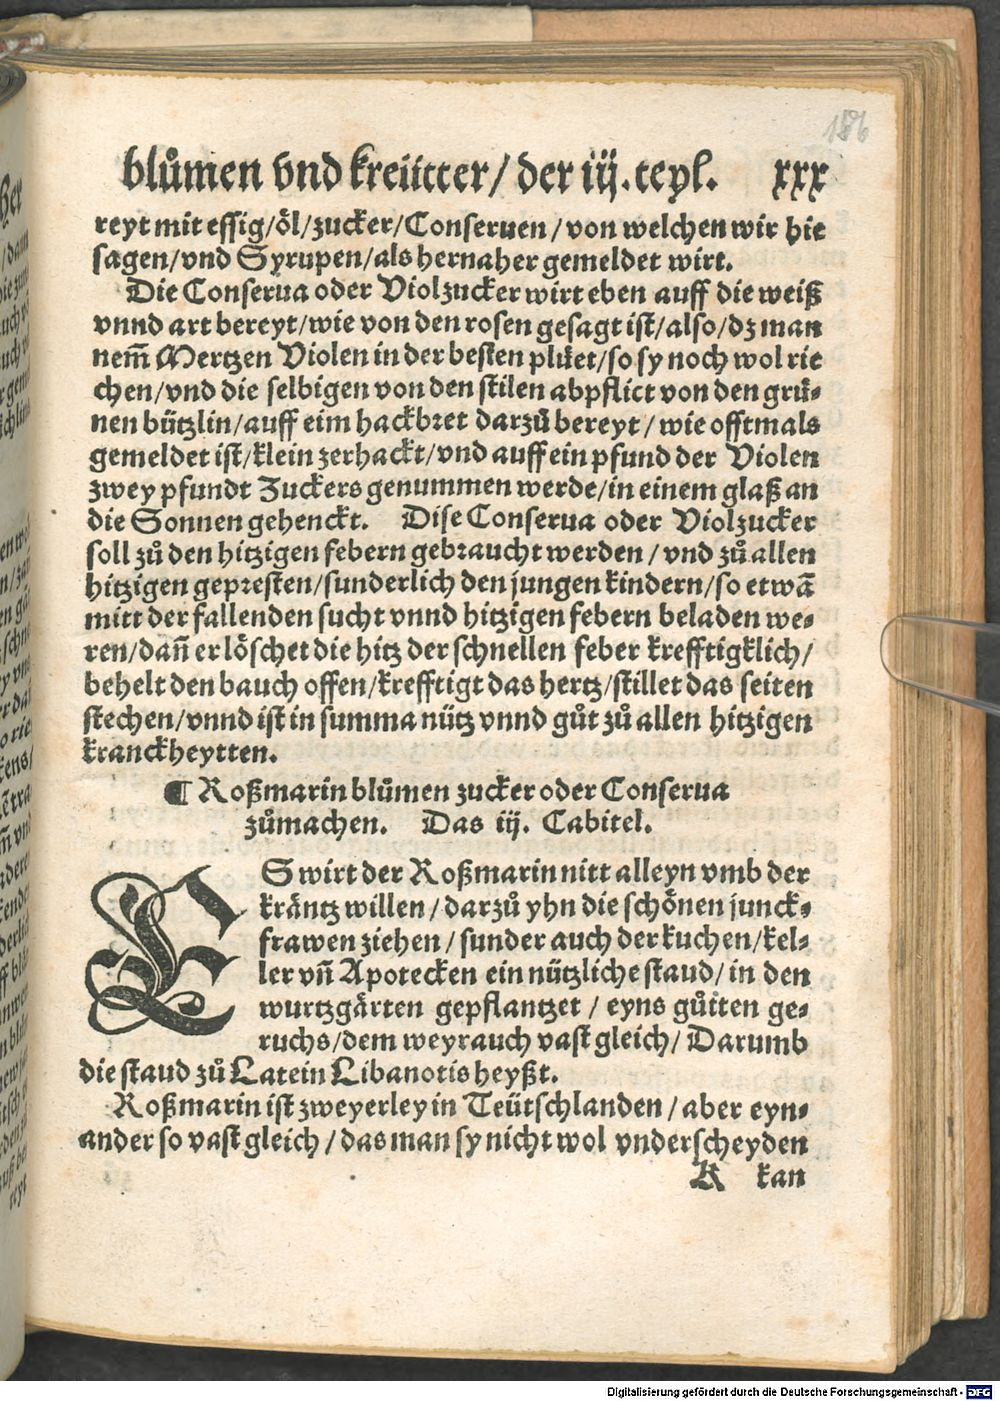 186
blůmen vnd kreütter/ der iij. teyl. xxx
reyt mit essig/öl/zucker/Conseruen/von welchen wir hie
sagen/vnd Syrupen/als hernaher gemeldet wirt.
Die Conserua oder Violzucker wirt eben auff die weiß
vnnd art bereyt/wie von den rosen gesagt ist/also/dz man
nem̃ Mertzen Violen in der besten plüet/so sy noch wol rie
chen/vnd die selbigen von den stilen abpflict von den grü⸗
nen bützlin/auff eim hackbret darzů bereyt/wie offtmals
gemeldet ist/klein zerhackt/vnd auff ein pfund der Violen
zwey pfundt Zuckers genummen werde/in einem glaß an
die Sonnen gehenckt. Dise Conserua oder Violzucker
soll zů den hitzigen febern gebraucht werden/vnd zů allen
hitzigen gepresten/sunderlich den jungen kindern/so etwã
mitt der fallenden sucht vnnd hitzigen febern beladen we⸗
ren/dañ er löschet die hitz der schnellen feber krefftigklich/
behelt den bauch offen/krefftigt das hertz/stillet das seiten
stechen/vnnd ist in summa nütz vnnd gůt zů allen hitzigen
kranckheytten.
¶ Roßmarin blůmen zucker oder Conserua
zůmachen. Das iij. Cabitel.
ES wirt der Roßmarin nitt alleyn vmb der
kräntz willen/darzů yhn die schönen junck⸗
frawen ziehen/sunder auch der kuchen/kel⸗
ler vñ Apotecken ein nützliche staud/in den
wurtzgärten gepflantzet/eyns gůten ge⸗
ruchs/dem weyrauch vast gleich/Darumb
die staud zů Latein Libanotis heyßt.
Roßmarin ist zweyerley in Teütschlanden/aber eyn⸗
ander so vast gleich/das man sy nicht wol vnderscheyden
K kan
Digitalisierung gefördert durch die Deutsche Forschungsgemeinschaft - DFG